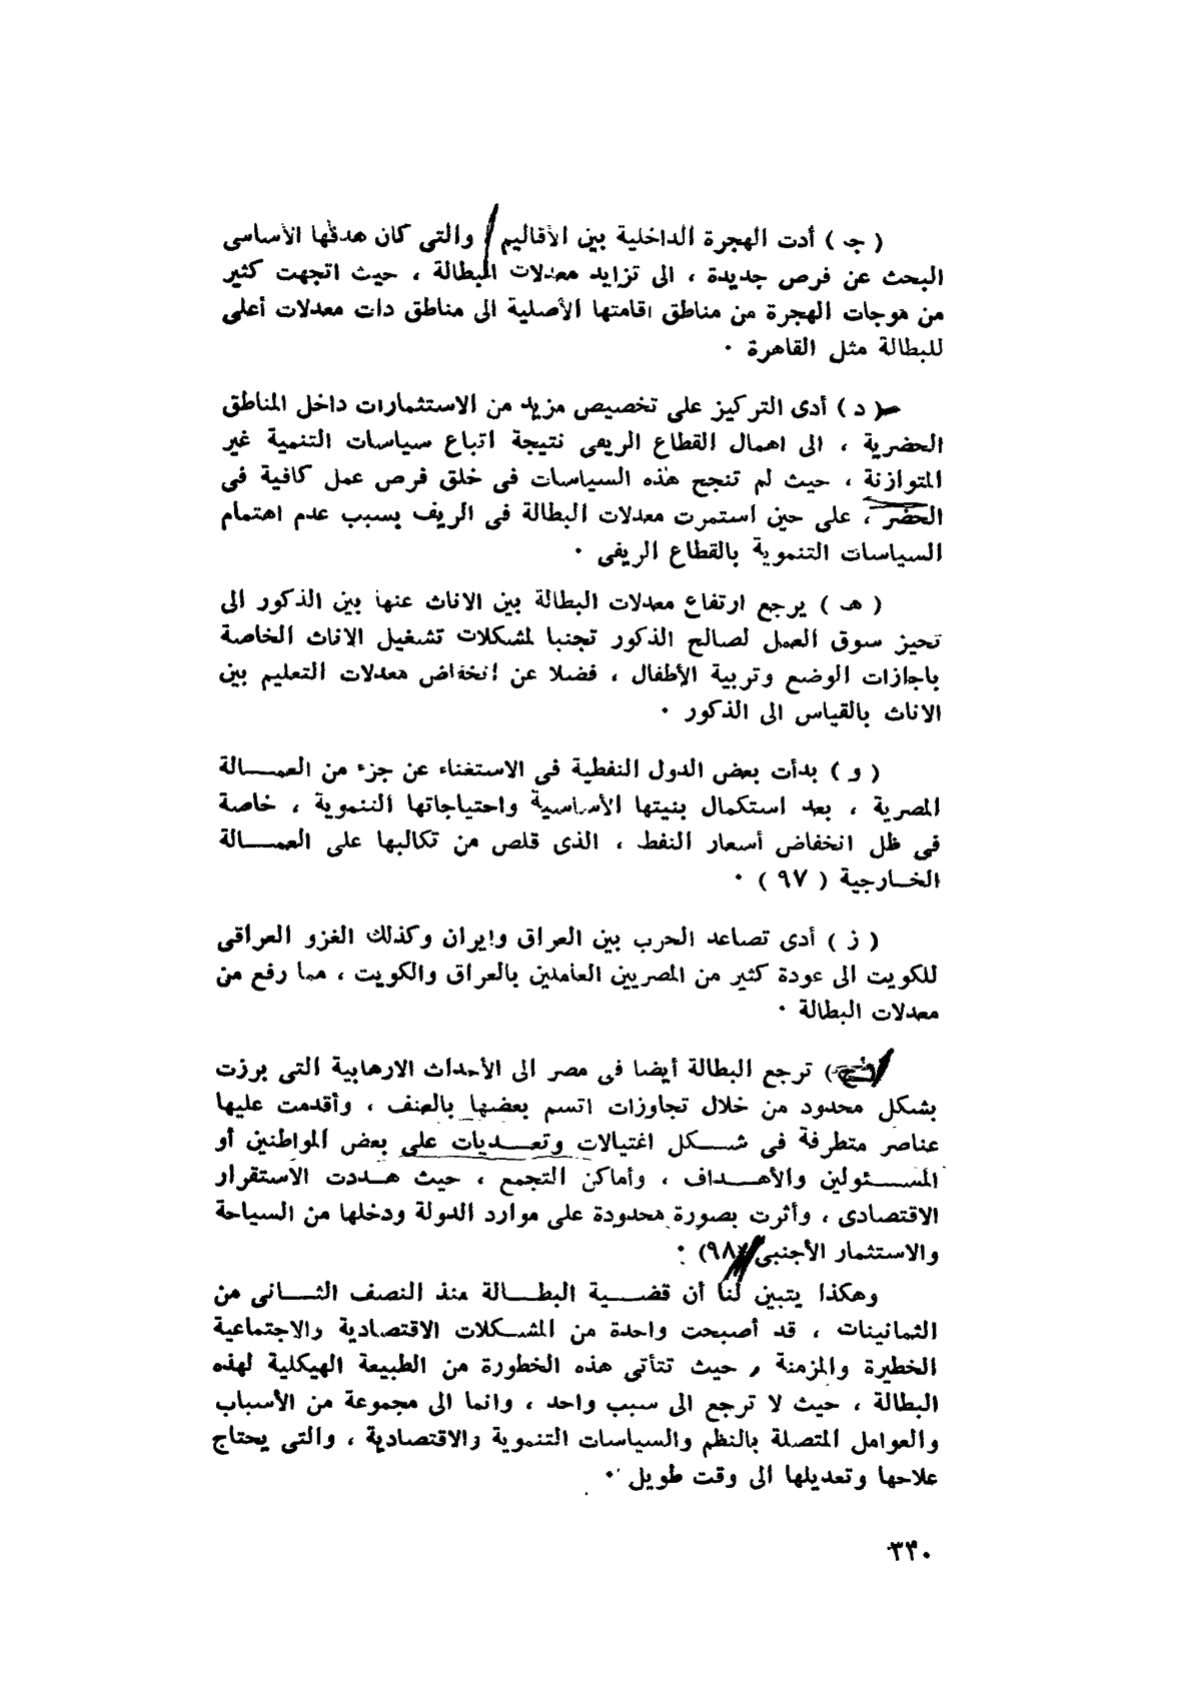 ( جـ ) أدت الهجرة الداخلية بين الأقاليم والتى كان هدفها الأساسى
البحث عن فرص جديدة ، الى تزايد معدلات البطالة ، حيث اتجهت كثير
من موجات الهجرة من مناطق اقامتها الأصلية الى مناطق ذات معدلات أعلى
للبطالة مثل القاهرة ٠
( د ) أدى التركيز على تخصيص مزيد من الاستثمارات داخل المناطق
الحضرية ، الى اهمال القطاع الريفى نتيجة اتباع سياسات التنمية غير
المتوازنة ، حيث لم تنجح هذه السياسات فى خلق فرص عمل كافية فى
الحضر ، على حين استمرت معدلات البطالة فى الريف بسبب عدم اهتمام
السياسات التنموية بالقطاع الريفى ٠
( هـ ) يرجع ارتفاع معدلات البطالة بين الاناث عنها بين الذكور الى
تحيز سوق العمل لصالح الذكور تجنبا لمشكلات تشغيل الاناث الخاصة
باجازات الوضع وتربية الأطفال ، فضلا عن انخفاض معدلات التعليم بين
الاناث بالقياس الى الذكور ٠
( و ) بدأت بعض الدول النفطية فى الاستغناء عن جزء من العمـــالة
المصرية ، بعد استكمال بنيتها الأساسية واحتياجاتها التنموية ، خاصة
فى ظل انخفاض أسعار النفط ، الذى قلص من تكالبها على العمـــالة
الخــارجية ( ٩٧ ) ٠
( ز ) أدى تصاعد الحرب بين العراق وايران وكذلك الغزو العراقى
للكويت الى عودة كثير من المصريين العاملين بالعراق والكويت ، مما رفع من
معدلات البطالة ٠
) ترجع البطالة أيضا فى مصر الى الأحداث الارهابية التى برزت
بشكل محدود من خلال تجاوزات اتسم بعضها بالعنف ، وأقدمت عليها
عناصر متطرفة فى شـــكل اغتيالات وتعـــديات على بعض المواطنين أو
المســـئولين والأهـــداف ، وأماكن التجمع ، حيث هــددت الاستقرار
الاقتصادى ، وأثرت بصورة محدودة على موارد الدولة ودخلها من السياحة
والاستثمار الأجنبى (٩٨) ٠
وهكذا يتبين لنا أن قضـــية البطـــالة منذ النصف الثـــانى من
الثمانينات ، قد أصبحت واحدة من المشــكلات الاقتصادية والاجتماعية
الخطيرة والمزمنة ، حيث تتأتى هذه الخطورة من الطبيعة الهيكلية لهذه
البطالة ، حيث لا ترجع الى سبب واحد ، وانما الى مجموعة من الأسباب
والعوامل المتصلة بالنظم والسياسات التنموية والاقتصادية ، والتى يحتاج
علاجها وتعديلها الى وقت طويل ٠
٣٣٠